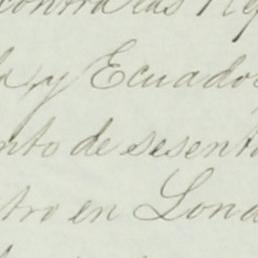 contra las Rep
a y Ecuado
nto de sesenta
tro en Lond